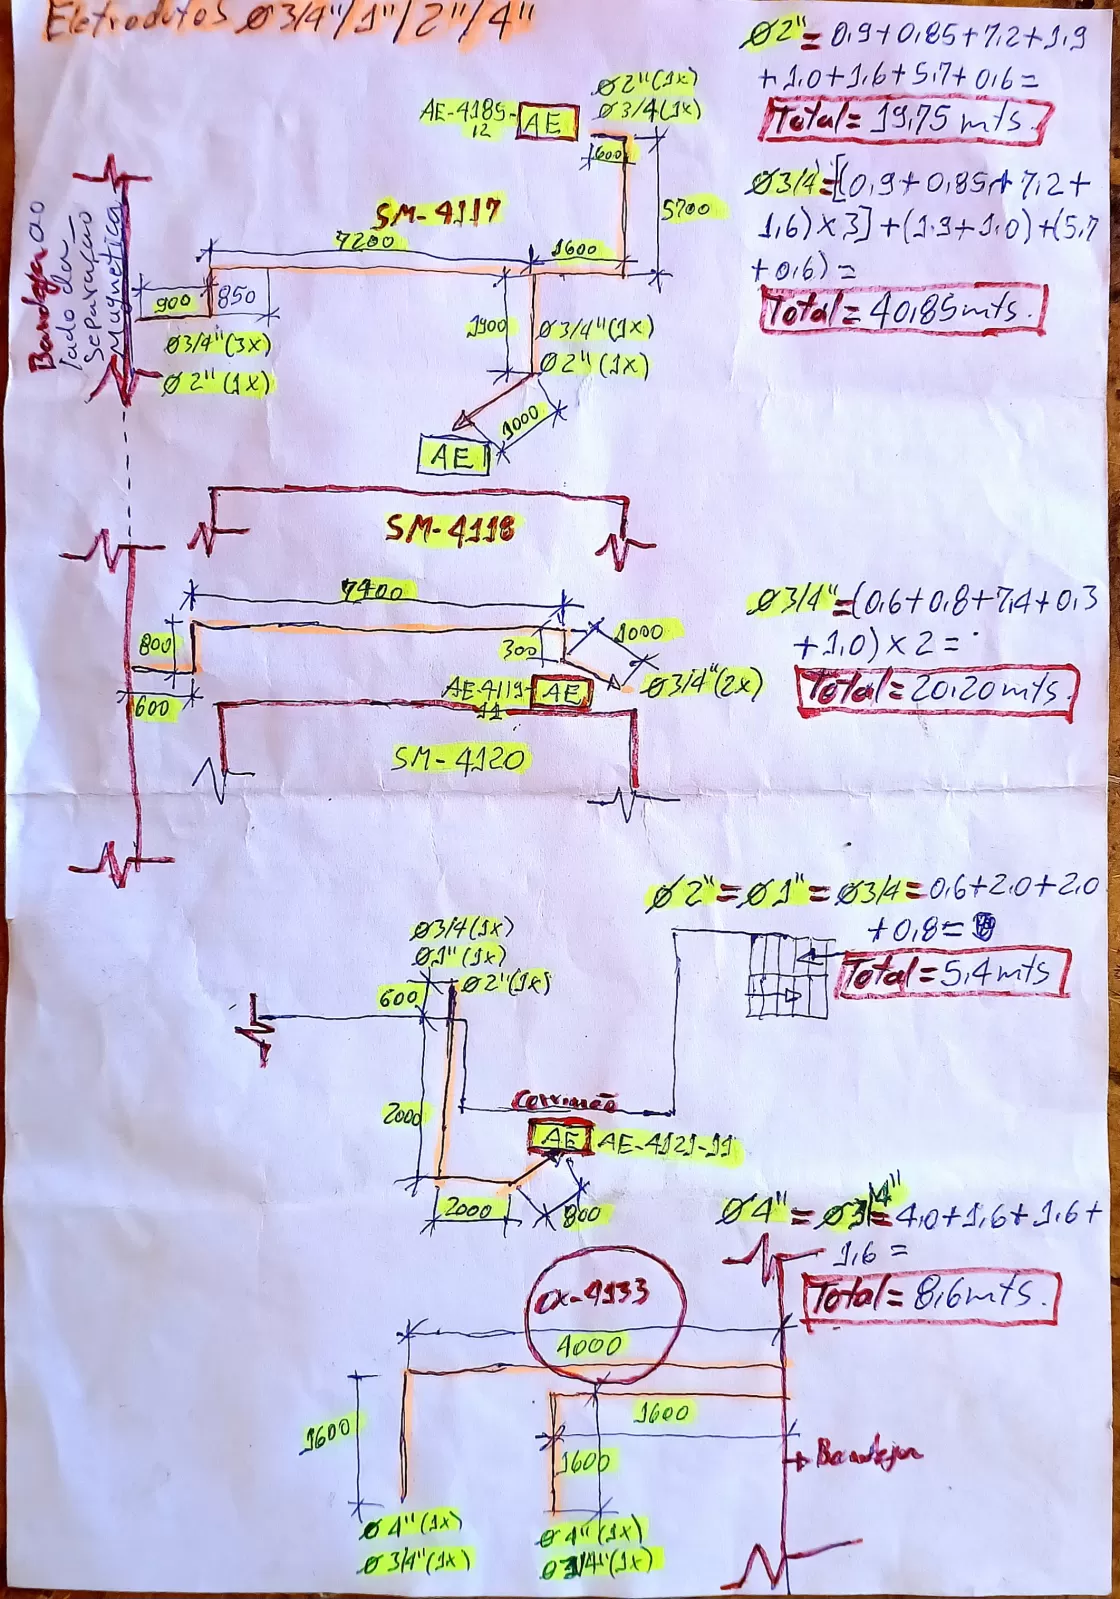 Eletrodutos Ø3/4"/1"/2"/4"
Ø2"= 0,9+0,85+7,2+1,9
+1,0+1,6+5,7+0,6=
Total= 19,75 mts.
Ø3/4"=[(0,9+0,85+7,2+
1,6)x3]+(1,9+1,0)+(5,7
+0,6)=
Total= 40,85mts.
Ø2"(1x)
Ø3/4(1x)
AE-4185-
12
AE
600
5700
SM-4117
7200
1600
Bandeja ao
lado da
Separação
Magnetica
900
850
1900
Ø3/4"(3x)
Ø2"(1x)
Ø3/4"(1x)
Ø2"(1x)
1000
AE
SM-4118
7400
800
300
1000
Ø3/4"(2x)
AE-4119-
11
AE
600
SM-4120
Ø3/4"=(0,6+0,8+7,4+0,3
+1,0)x2=
Total=20,20mts.
Ø2"=Ø1"=Ø3/4=0,6+2,0+2,0
+0,8=
Total=5,4mts
Ø3/4(1x)
Ø1"(1x)
Ø2"(1x)
600
2000
Corrimão
AE
AE-4121-11
2000
800
Ø4"=Ø3/4"=4,0+1,6+1,6+
1,6=
Total=8,6mts.
CX-4133
4000
1600
1600
1600
Bandeja
Ø4"(1x)
Ø3/4"(1x)
Ø4"(1x)
Ø3/4"(1x)